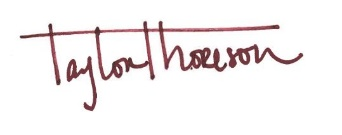 Taylor Thoreson